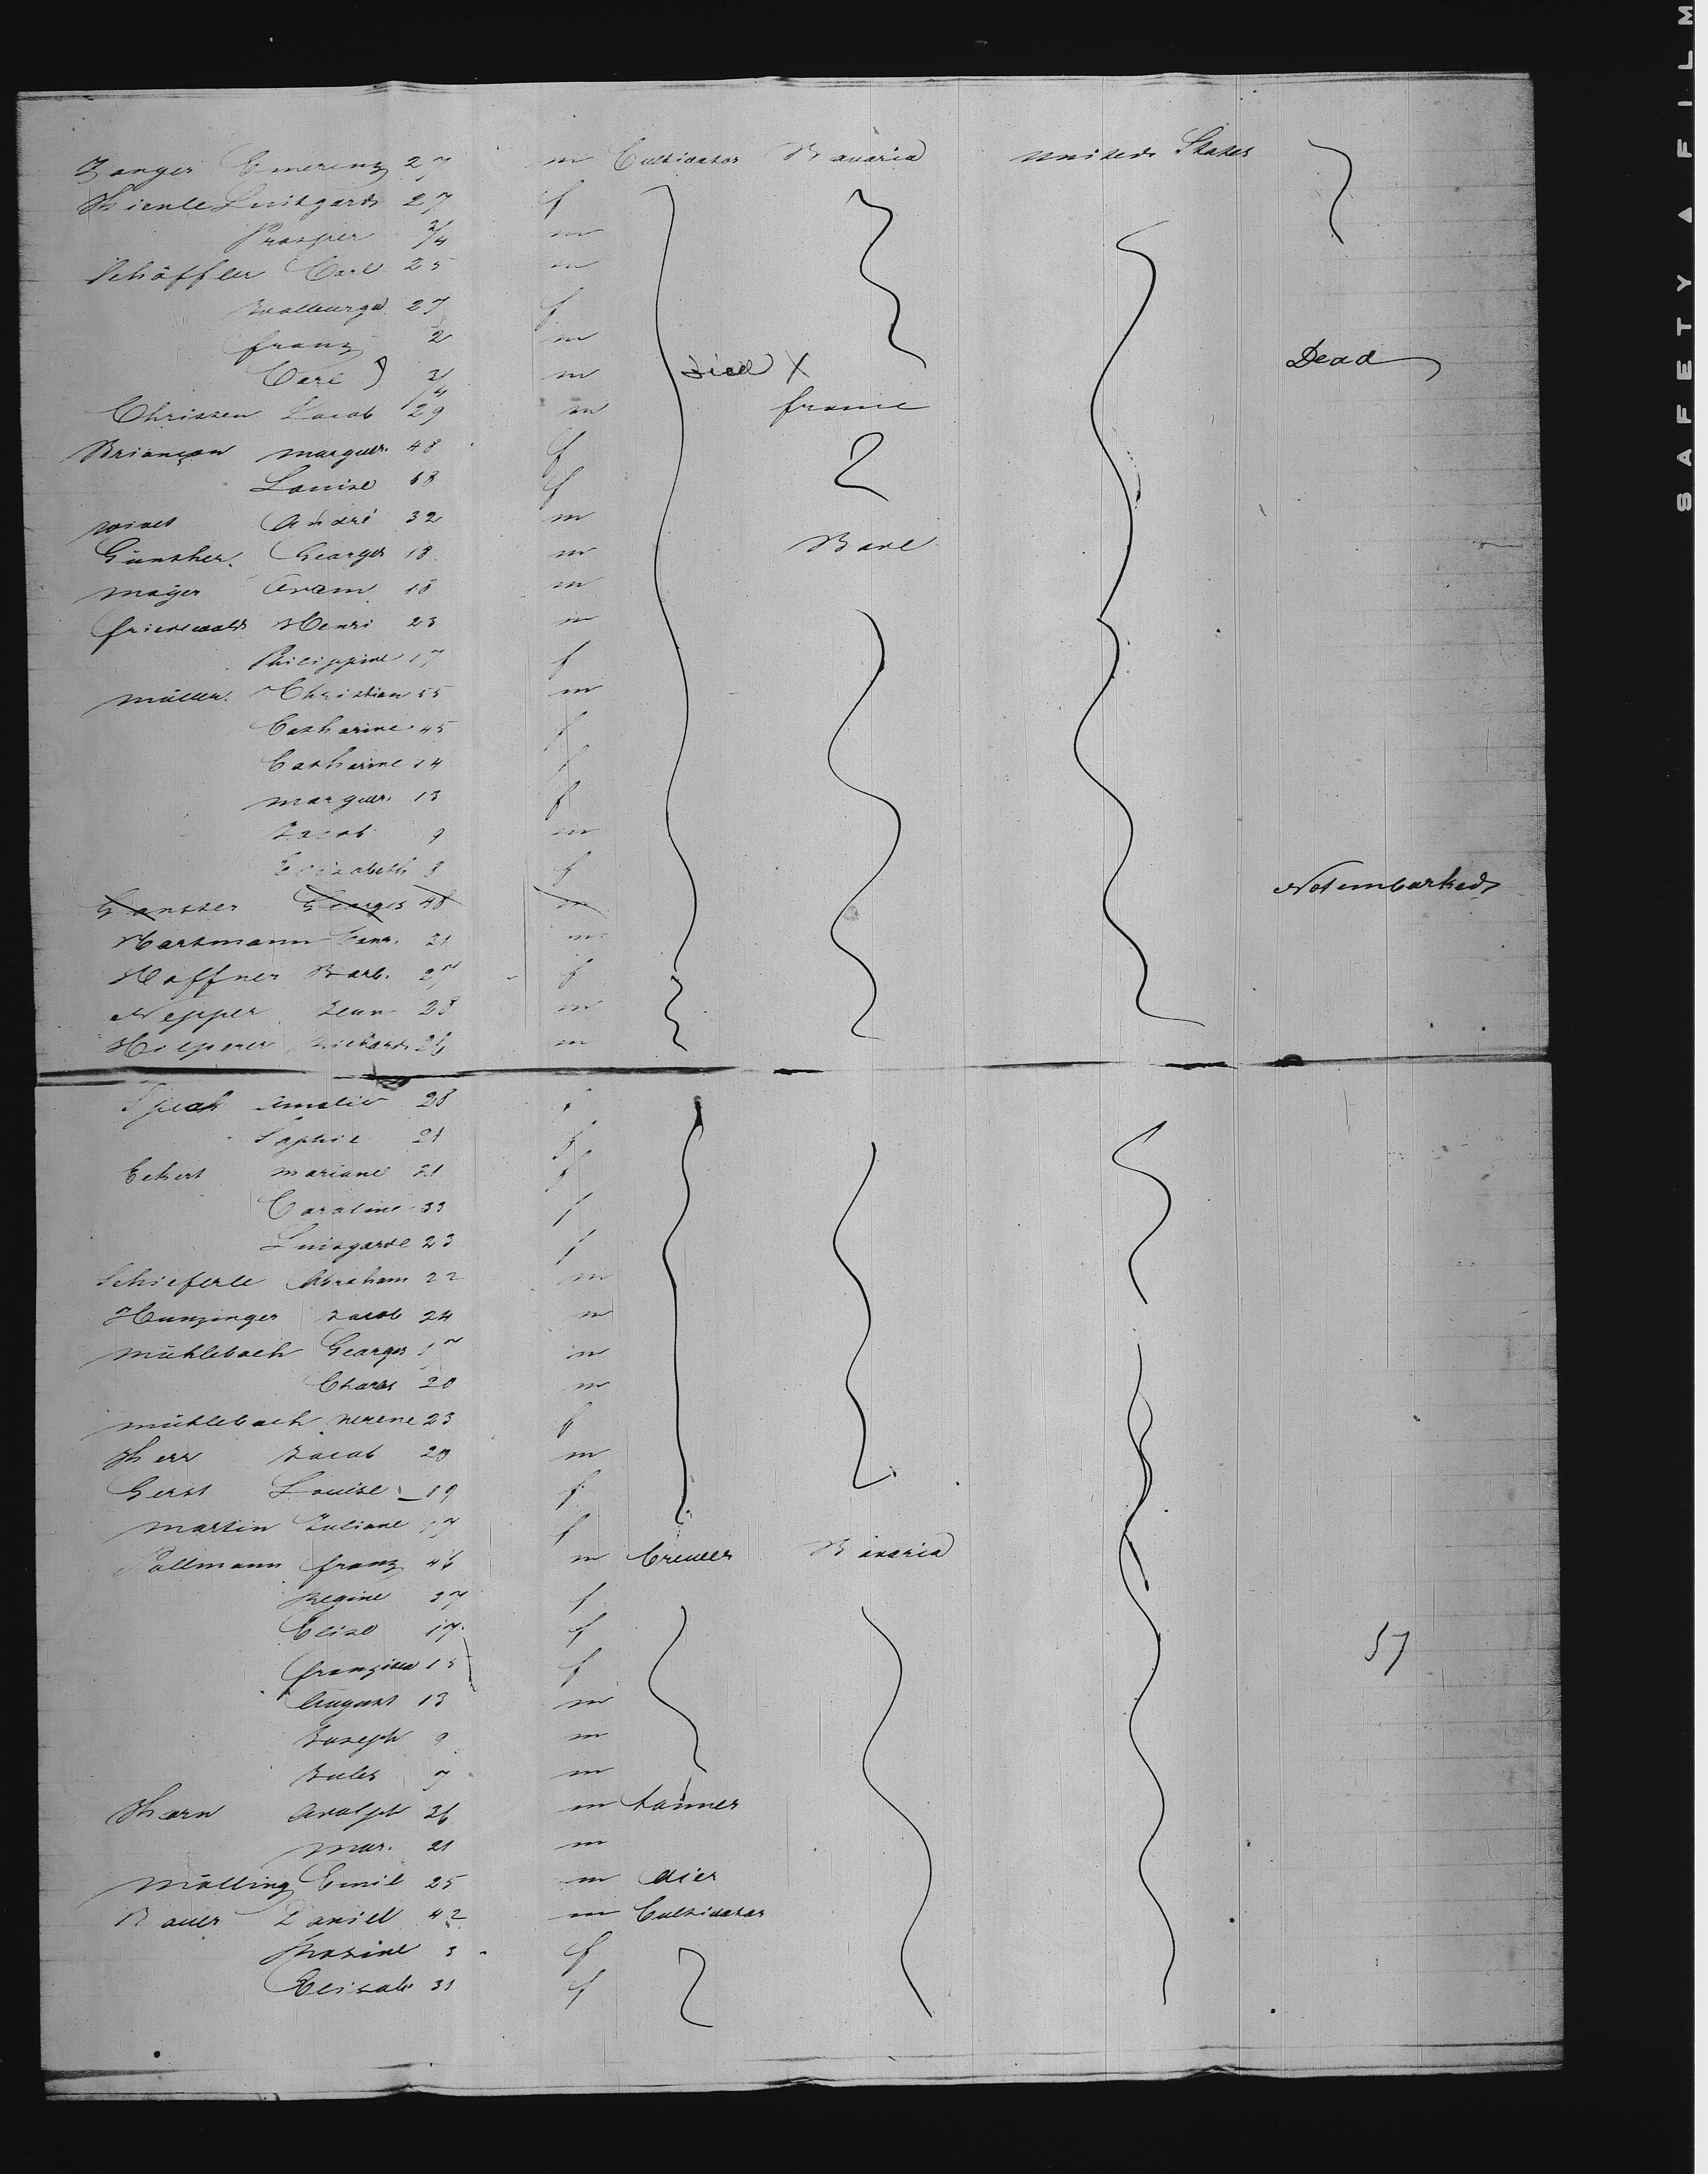 Zanger Emerenz 27 m Cultivator Bavaria United States
Thienle Luitgard 27 f
Prosper 3/4 m
Schöffler Carl 25 m
Walburga 27 f
franz 2 m
Carl 3/4 m died X Dead
Christen Jacob 29 m france
Briançon marguer. 48 f
Louise 18 f
André 32 m
Günther Georges 18 m Bade
mayer Adam 18 m
friedewald Henri 23 m
Philippine 17 f
müller Christian 55 m
Catharine 45 f
Catharine 14 f
marguer. 13 f
Jacob 9 m
Elisabeth 8 f
Ganster Georges 48 m Not embarked
Hartmann Conr. 31 m
Haffner Barb. 27 f
Nepper Jean 28 m
Hilperer Richard 26 m
Speck Amelie 28 f
Sophie 21 f
Eckert mariane 21 f
Caroline 33 f
Luitgarde 23 f
Schieferle Abraham 22 m
Hunzinger Jacob 24 m
mühlebach Georges 17 m
Charles 20 m
mühlebach Verene 23 f
Therr Jacob 20 m
Gerst Louise 19 f
martin Juliane 17 f
Pollmann franz 46 m brewer Bavaria
Regine 37 f
Elise 17 f
franziska 15 f
August 13 m
Joseph 9 m
Jules 7 m
57
Thorn Adolph 36 m tanner
mar. 21 m
mölling Emil 25 m dier
Bauer Daniel 42 m Cultivator
Rosine 3 f
Elisab. 31 f
SAFETY ▲ FILM